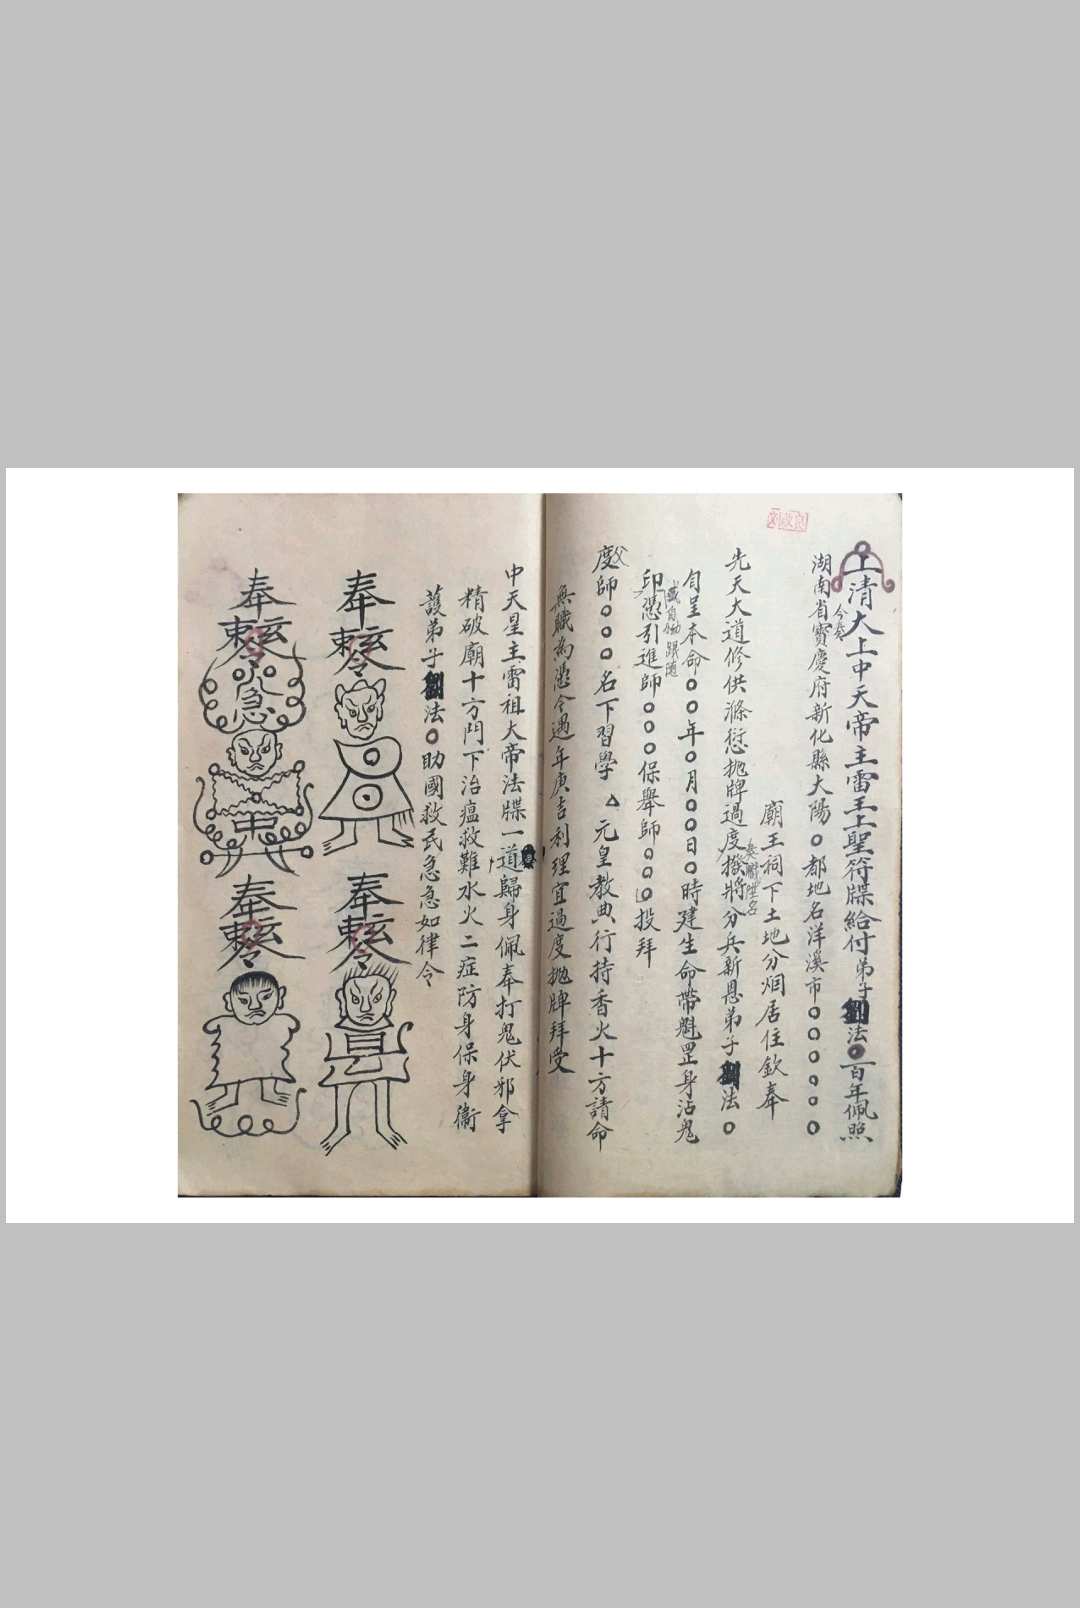 上清大上中天帝主雷王上聖符牒給付弟子劉法〇百年佩照
今奏
湖南省寶慶府新化縣大陽〇都地名洋溪市〇〇〇〇〇〇
廟王祠下土地分烟居住欽奉
先天大道修供滌愆抛牌過度撥將分兵新恩弟子劉法〇
旬呈本命〇〇年〇月〇〇日〇時建生命帶魁罡身沾鬼
印憑引進師〇〇〇保舉師〇〇〇投拜
度師〇〇〇名下習學△元皇教典行持香火十方請命
無職為憑今遇年庚吉利理宜過度抛牌拜受
中天星主雷祖大帝法牒一道歸身佩奉打鬼伏邪拿
精破廟十方門下治瘟救難水火二症防身保身衛
護弟子劉法〇助國救民急急如律令
奉
敕令
奉
敕令
奉
敕令
火急
奉
敕令